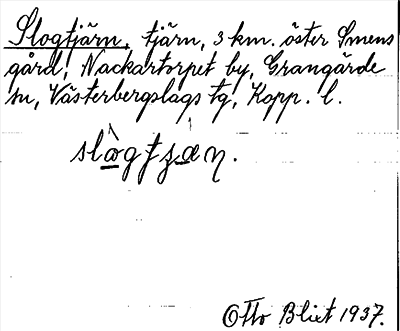 Slogtjärn, tjärn, 3 km. öster Smens
gård, Nackartorpet by, Grangärde
sn, Västerbergslags tg, Kopp. l.
slògtʒæ̀ɳ.
Otto Blixt 1937.